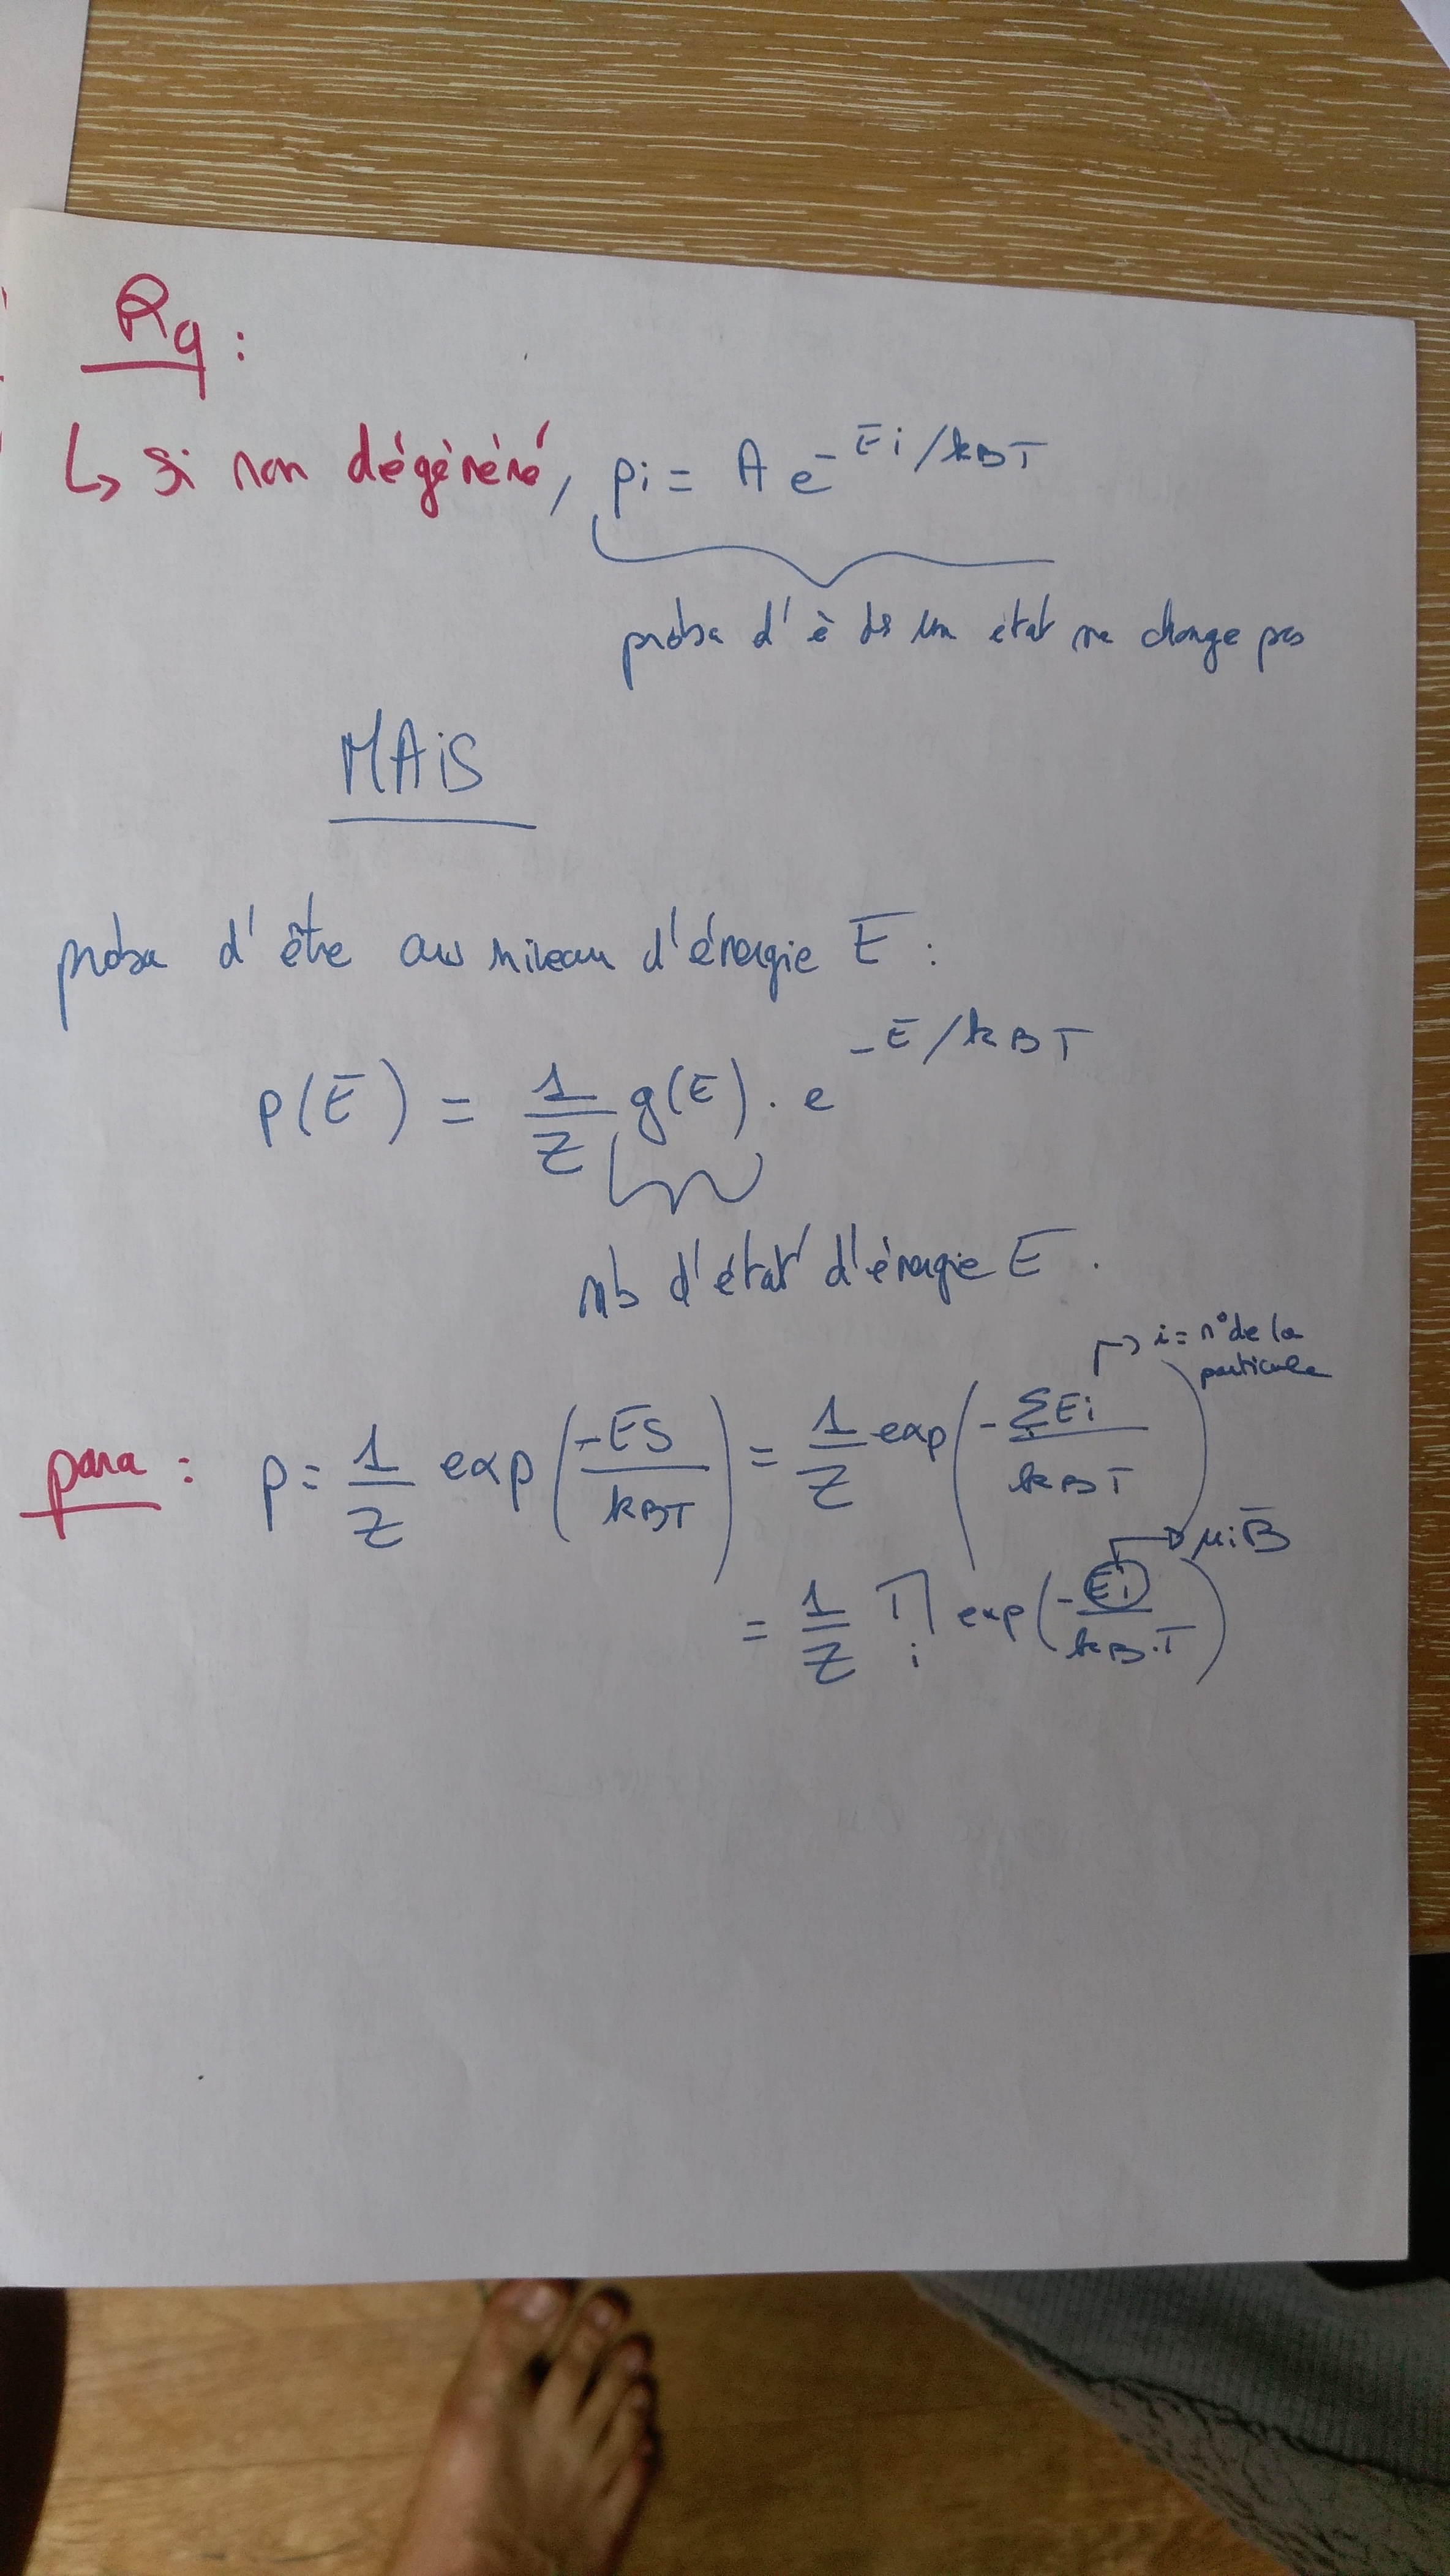 Rq :
↳ si non dégénéré, pi = A e^-Ei/kBT
proba d'ê ds un état ne change pas
MAIS
proba d'être au niveau d'énergie E :
p(E) = 1/Z g(E) . e^-E/kBT
nb d'état d'énergie E .
↱ i = n° de la particule
para : p = 1/Z exp(-ES/kBT) = 1/Z exp(-ΣEi/kBT)
→ μiB
= 1/Z ∏i exp(-Ei/kB.T)